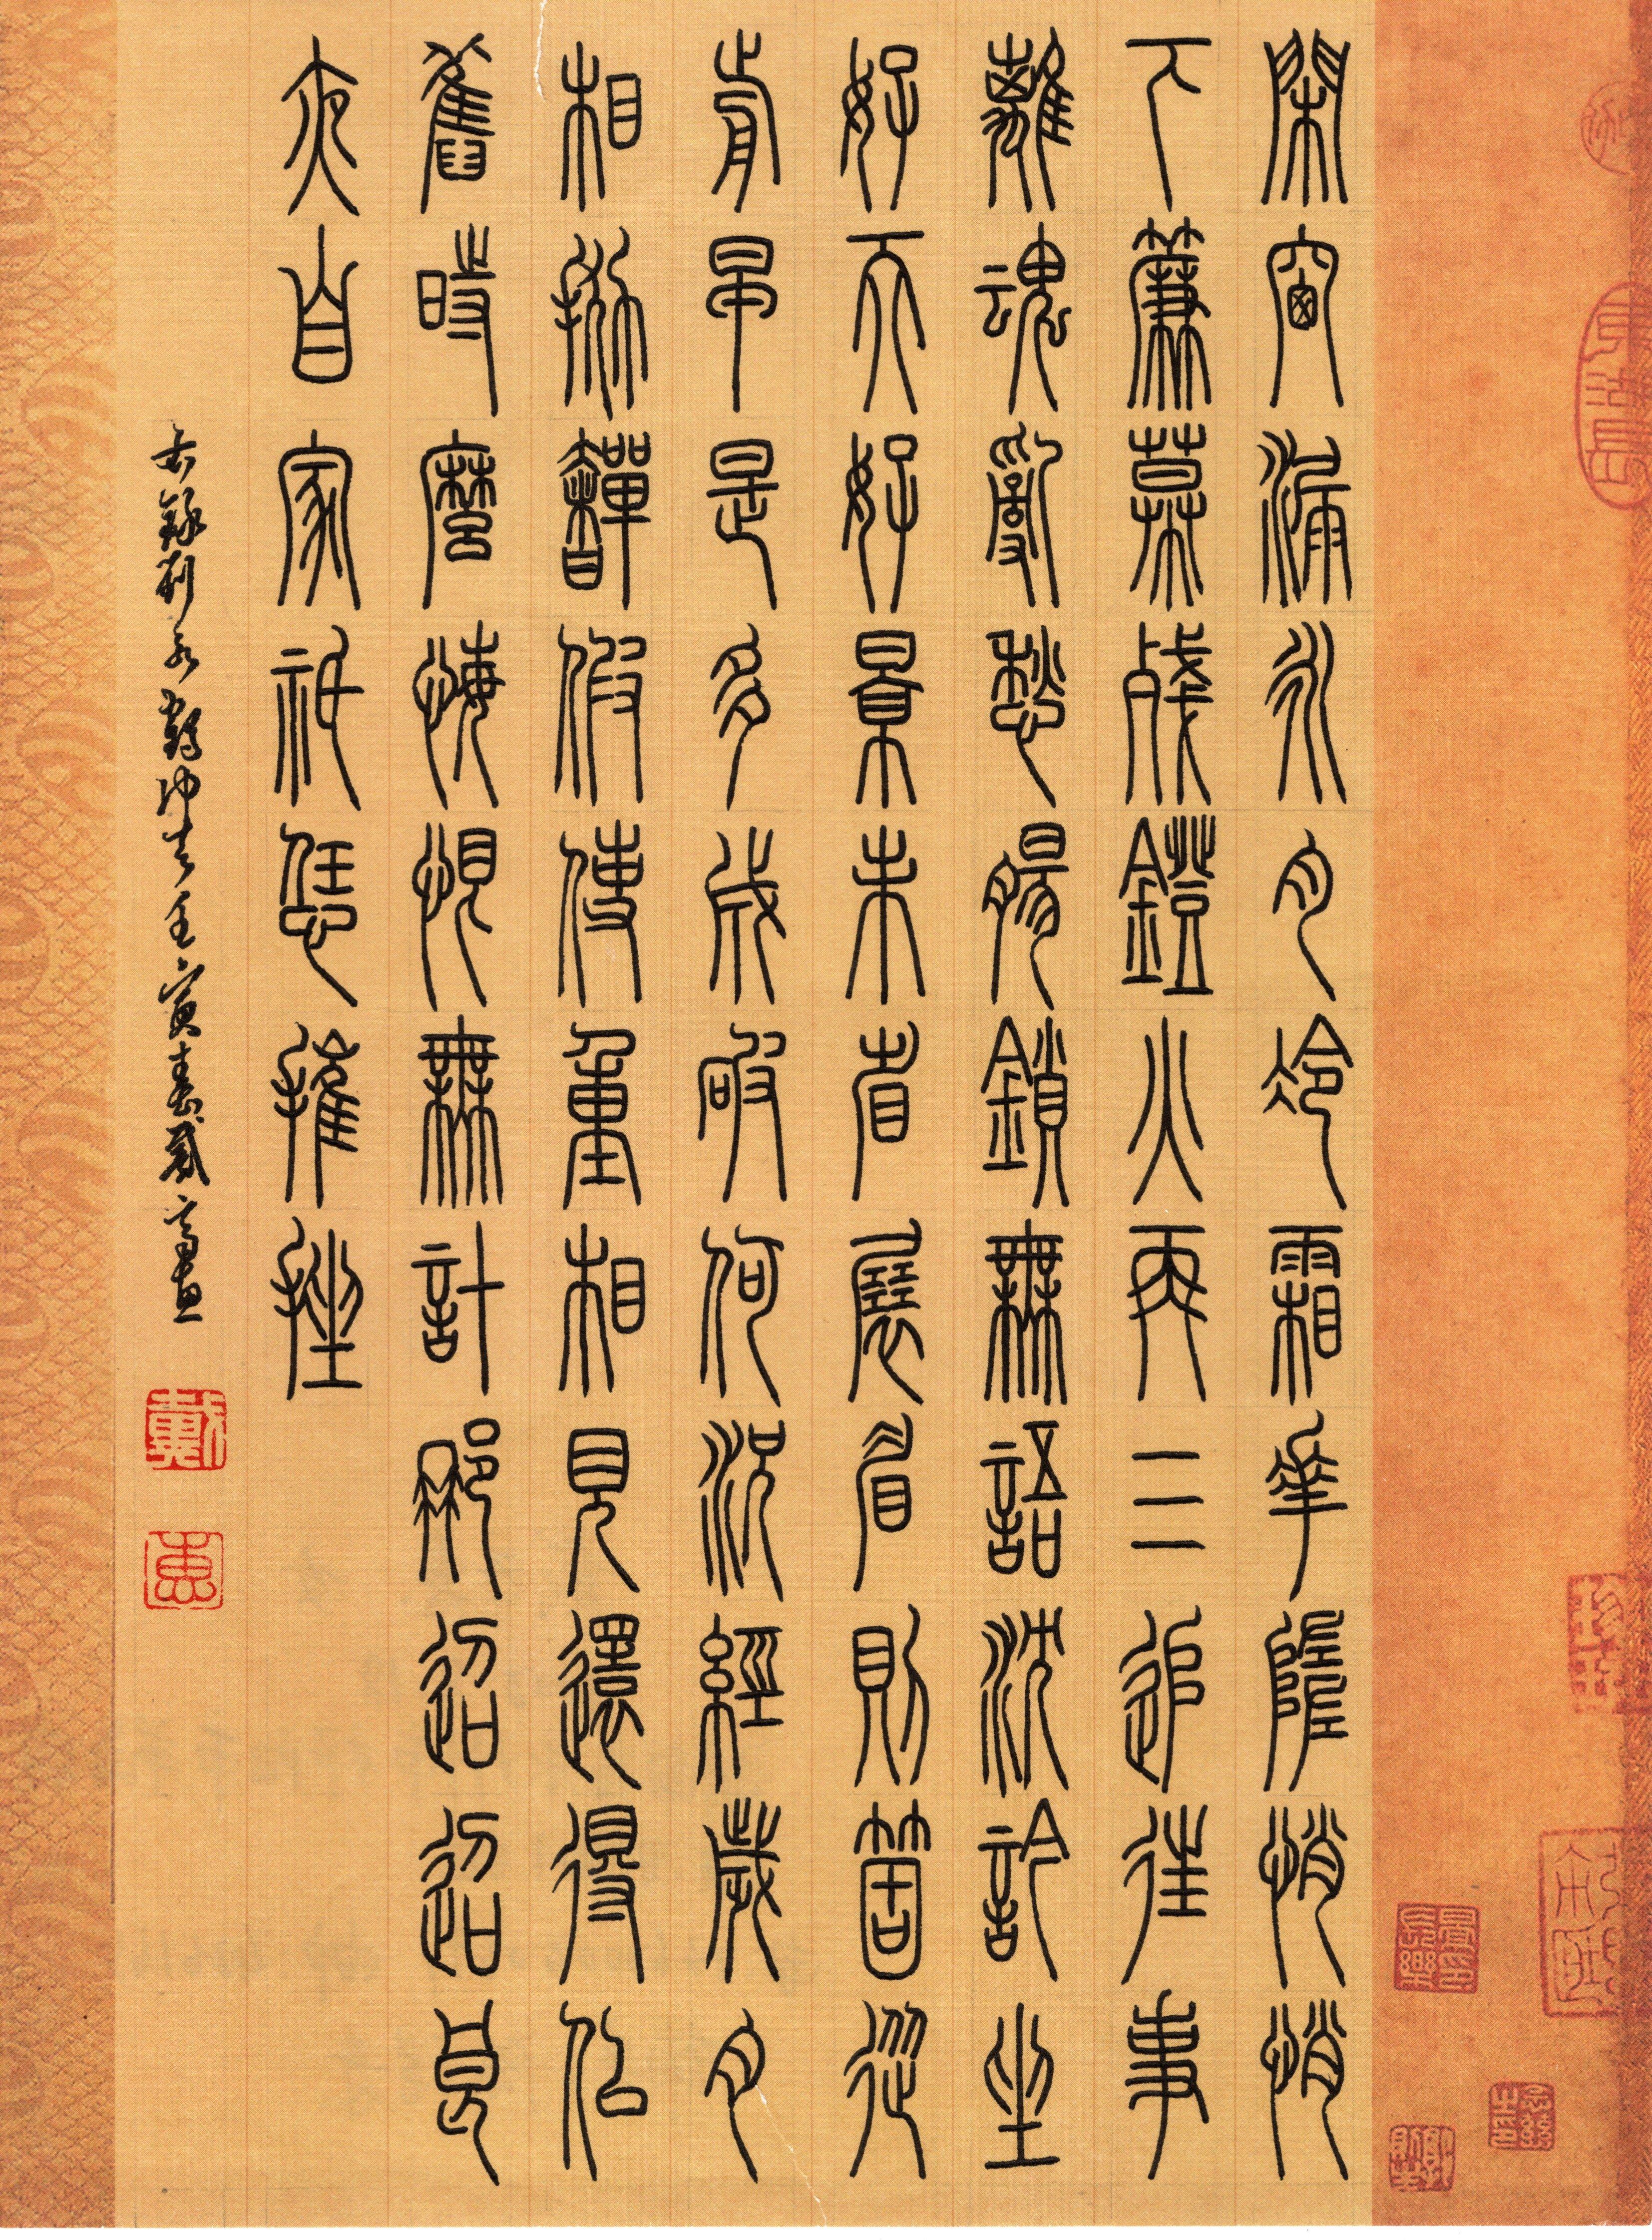 閑窗漏永月冷霜華墮悄悄
下簾幕殘鐙火再三追往事
離魂亂愁腸鎖無語沈訡坐
好天好景未省展眉則箇從
前早是多成破何況經歲月
相拋奲假使重相見還得似
舊時麼悔恨無計那迢迢良
夜自家祇恁摧挫
右錄柳永鶴沖天壬寅春戴惠書
戴
惠